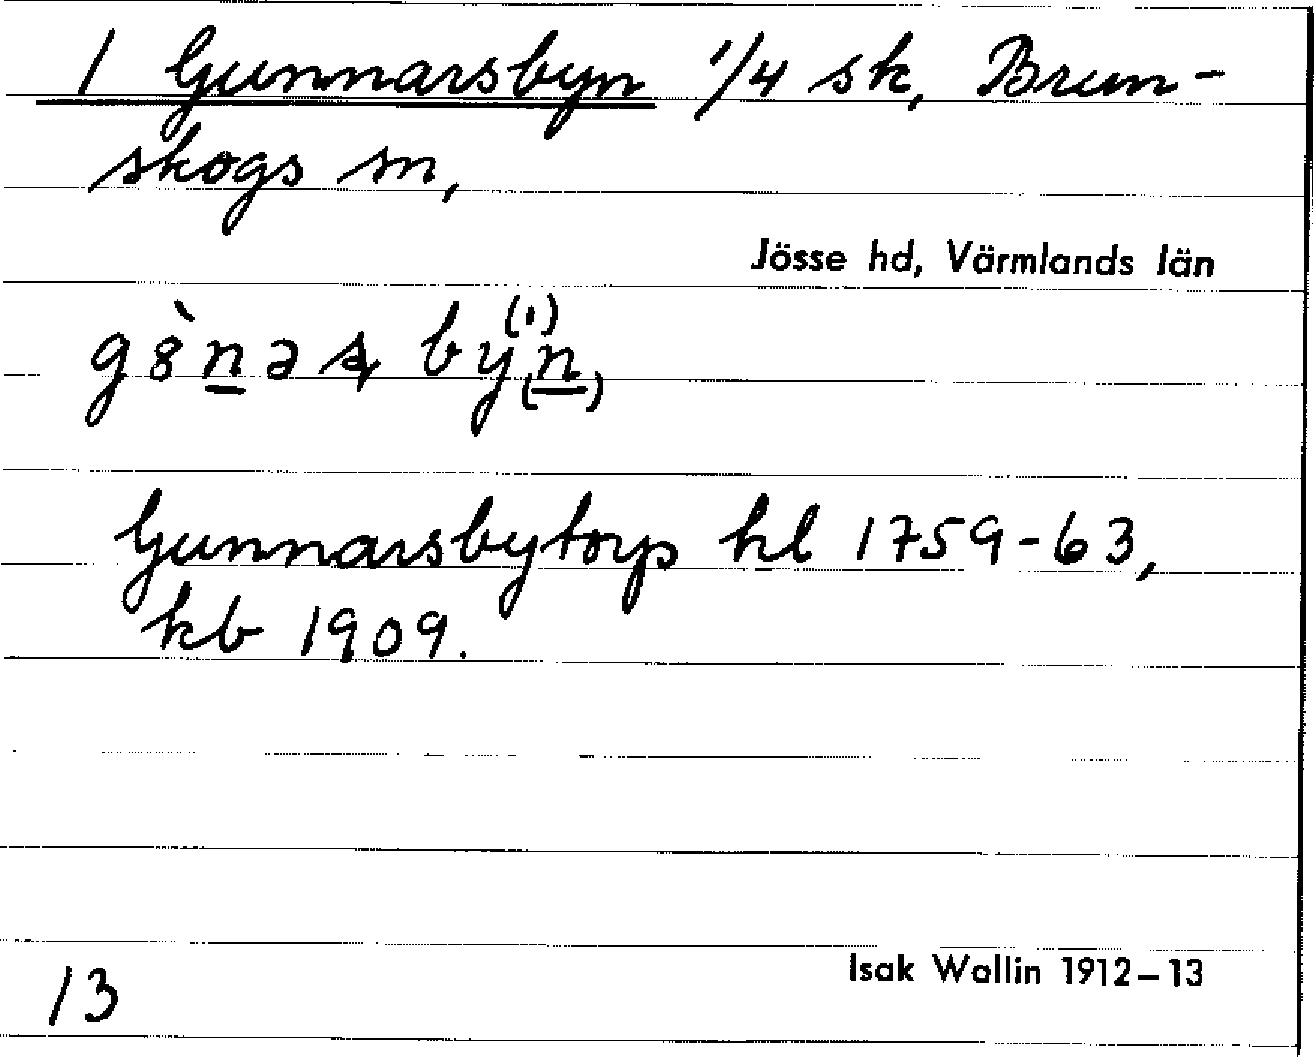 1 Gunnarsbyn 1/4 sk, Brun-
skogs sn,
Jösse hd, Värmlands län
g8̀n̲əʂ by(ˈ)(n̲)
Gunnarsbytorp hl 1759-63,
kb 1909.
Isak Wallin 1912–13
13